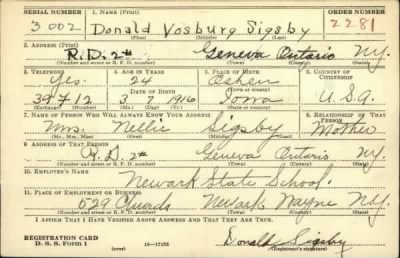 SERIAL NUMBER 1. NAME (Print) ORDER NUMBER
3002 Donald Vosburg Sigsby 2281
(First) (Middle) (Last)
2. ADDRESS (Print)
R.D. 2# Geneva Ontario N.Y.
(Number and street or R. F. D. number) (Town) (County) (State)
3. TELEPHONE 4. AGE IN YEARS 5. PLACE OF BIRTH 6. COUNTRY OF CITIZENSHIP
Yes. 24
DATE OF BIRTH (Town or county)
39 F 12 3 7 1916 Iowa U.S.A.
(Exchange) (Number) (Mo.) (Day) (Yr.) (State or country)
7. NAME OF PERSON WHO WILL ALWAYS KNOW YOUR ADDRESS 8. RELATIONSHIP OF THAT PERSON
Mrs. Nellie Sigsby Mother
(Mr., Mrs., Miss) (First) (Middle) (Last)
9. ADDRESS OF THAT PERSON
R.D. 2# Geneva Ontario N.Y.
(Number and street or R. F. D. number) (Town) (County) (State)
10. EMPLOYER'S NAME
Newark State School.
11. PLACE OF EMPLOYMENT OR BUSINESS
529 Church Newark Wayne N.Y.
(Number and street or R. F. D. number) (Town) (County) (State)
I AFFIRM THAT I HAVE VERIFIED ABOVE ANSWERS AND THAT THEY ARE TRUE.
REGISTRATION CARD
D. S. S. Form 1 (over) 16—17105 Donald Sigsby
(Registrant's signature)